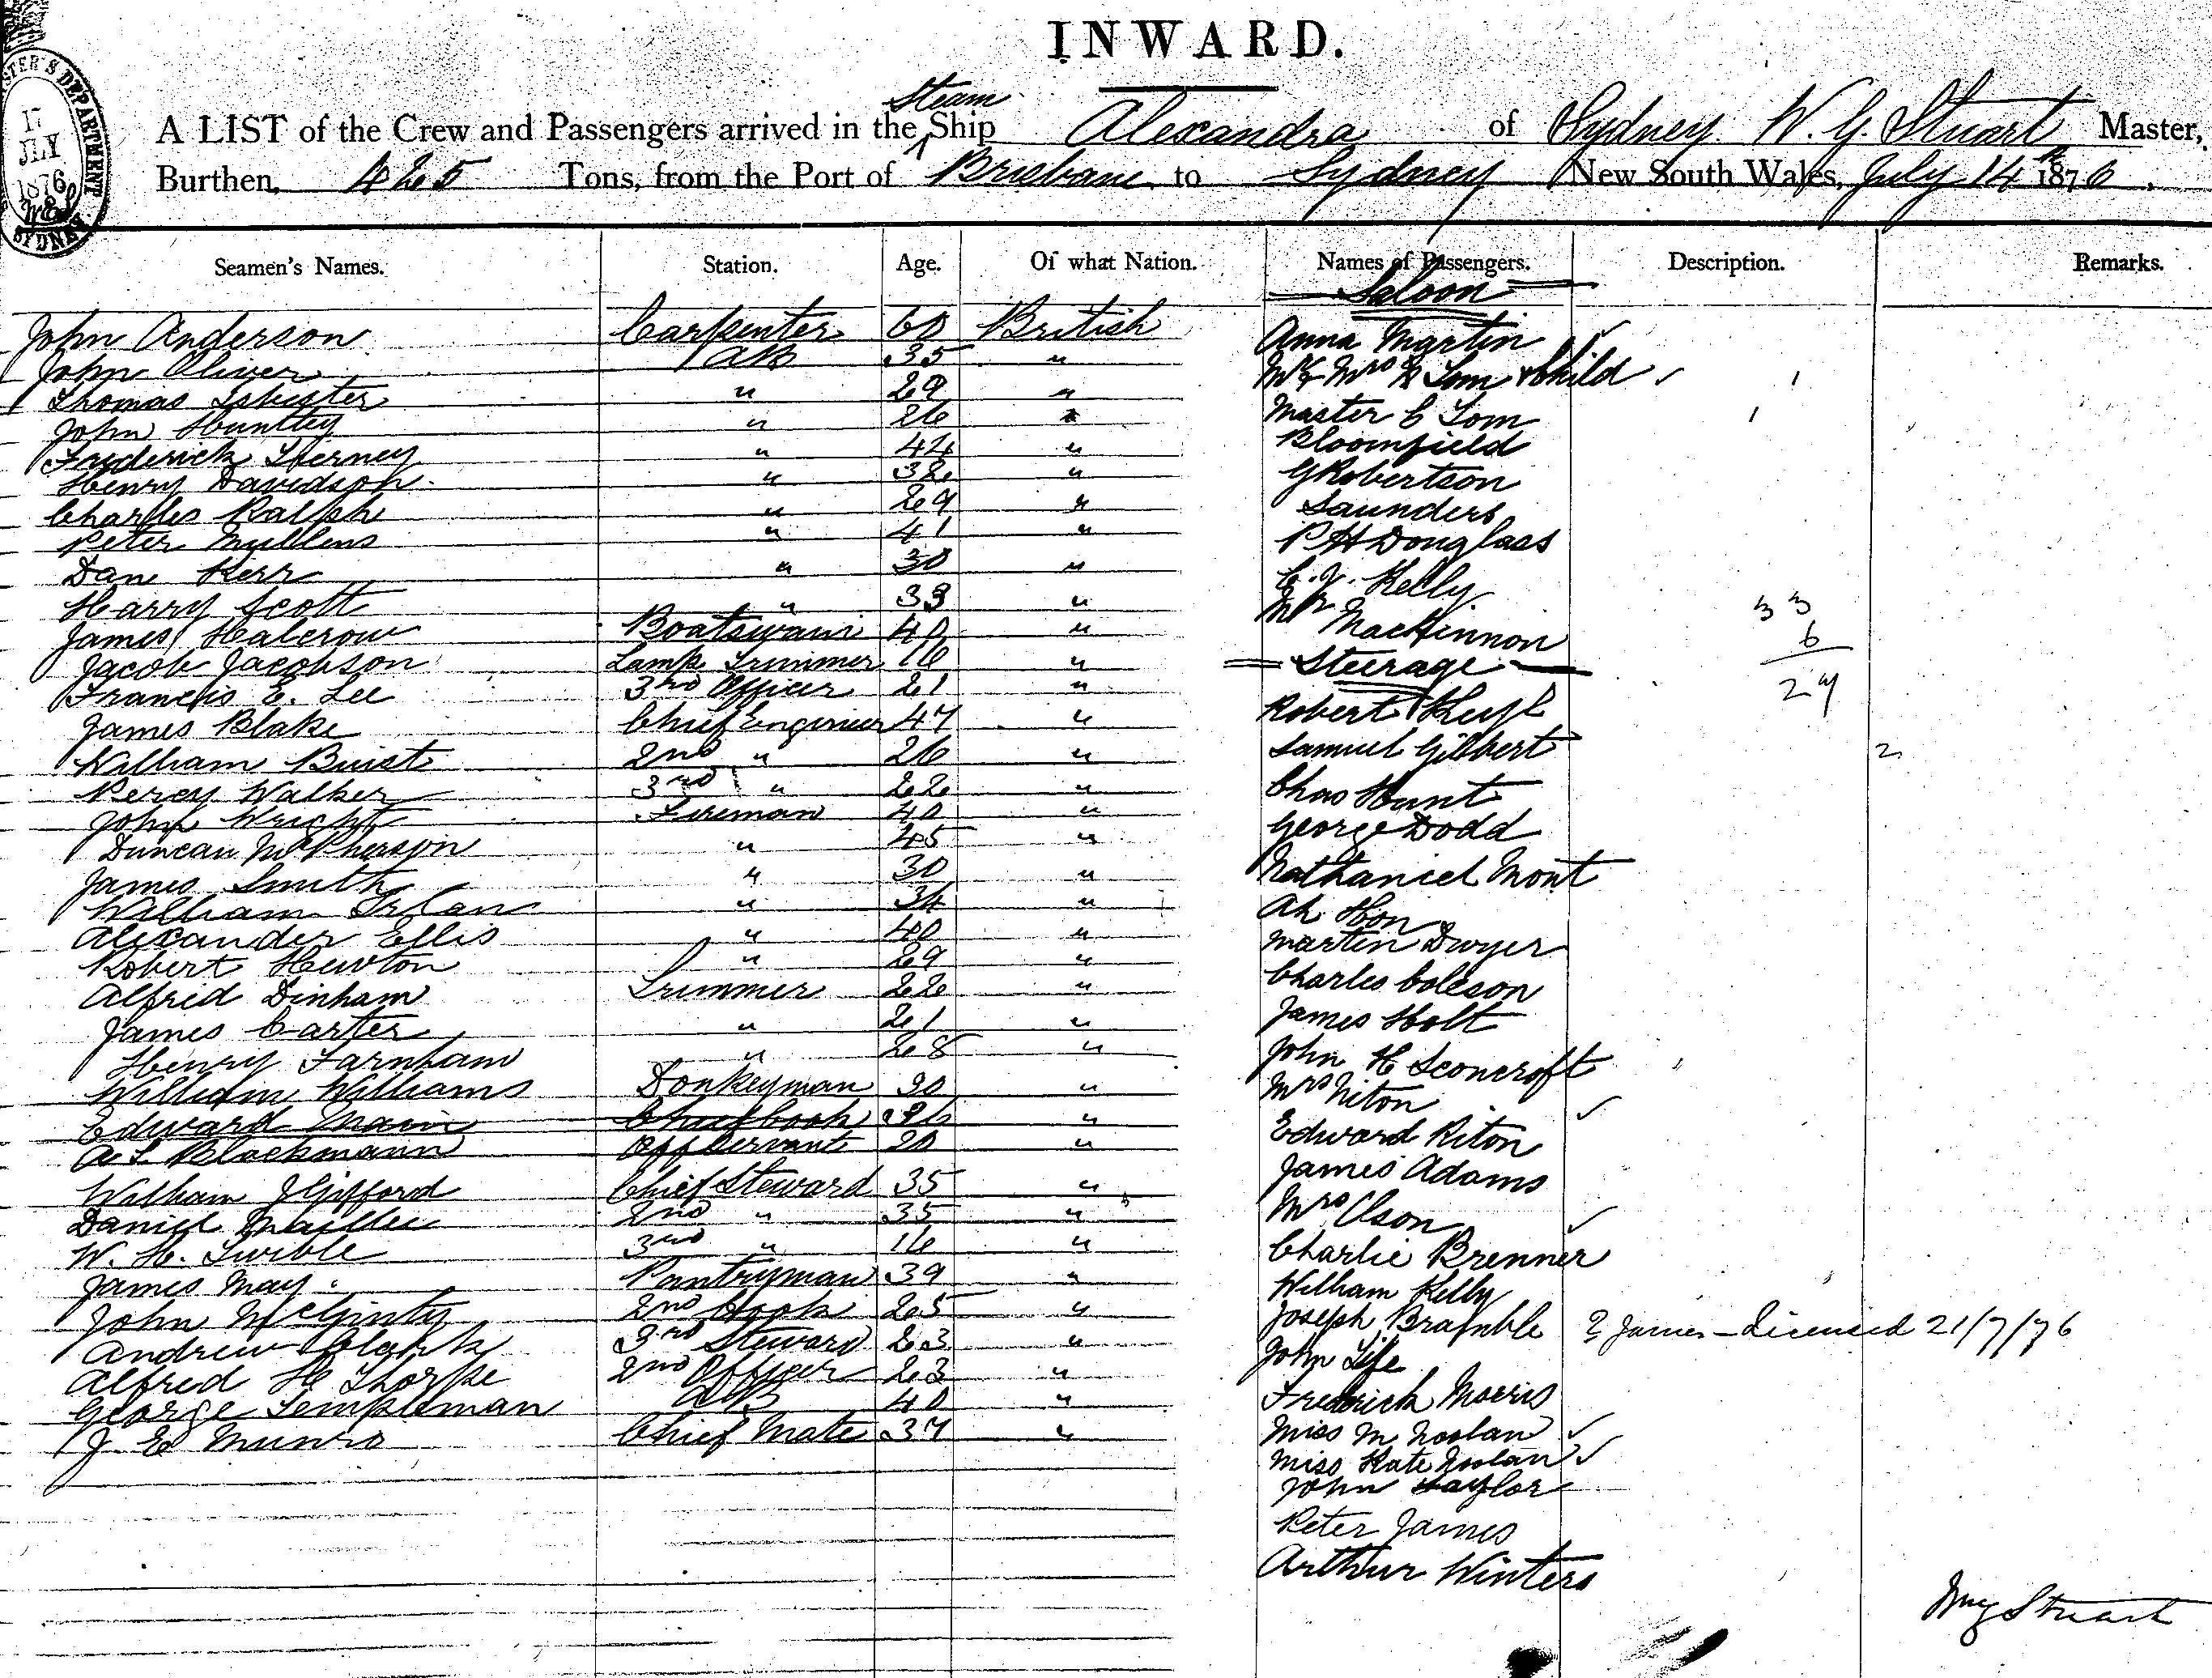 INWARD.
A LIST of the Crew and Passengers arrived in the Steam Ship Alexandra of Sydney W. G. Stuart Master,
Burthen, 425 Tons, from the Port of Brisbane to Sydney New South Wales, July 14th 1876.
17
JLY
1876
SYDNEY
Seamen's Names. Station. Age. Of what Nation. Names of Passengers. Description. Remarks.
Saloon
John Anderson Carpenter 60 British Anna Martin
John Oliver AB 35 " Mr & Mrs Tom & Child
Thomas Isbister " 29 " Master C Tom
John Huntley " 26 " Bloomfield
Frederick Tierney " 44 " G Robertson
Henry Davidson " 32 " Saunders
Charles Ralph " 29 " P H Douglass
Peter Mullens " 41 "
Dan Kerr " 30 " C. J. Kelly
Harry Scott " 33 " Mr MacKinnon 33
James Halcrow Boatswain 40 " 6
Jacob Jacobson Lamp Trimmer 16 " Steerage
Francis E. Lee 3rd Officer 21 " Robert 27
James Blake Chief Engineer 47 "
William Buist 2nd " 26 " Samuel Gilbert 2
Percy Walker 3rd " 22 " Chas Hunt
John Wright Fireman 40 " George Dodd
Duncan McPherson " 45 "
James Smith " 30 " Nathaniel Mont
William " 34 " Ah Hon
Alexander Ellis " 40 " Martin Dwyer
Robert Hewton " 29 "
Alfred Dinham Trimmer 22 " Charles Coleson
James Carter " 21 " James Holt
Henry Farnham " 28 " John H Sconcroft
William Williams Donkeyman 30 " Mrs Niton
Edward Main Chief Cook 26 " Edward Riton
A L Blackmann Off Servant 20 " James Adams
William J Gifford Chief Steward 35 " Mrs Olson
Daniel 2nd " 35 "
W. H. Twible 3rd " 16 " Charlie Brenner
James May Pantryman 39 " William Kelly
John McGinty 2nd Cook 25 " Joseph Bramble ? James - Licensed 21/7/76
Andrew Clark 3rd Steward 23 " John Tife
Alfred H Thorpe 2nd Officer 23 " Frederick Morris
George Templeman AB 40 " Miss M Noolan
J E Munro Chief Mate 37 " Miss Kate Noolan
John Taylor
Peter James
Arthur Winters
Wm G Stuart